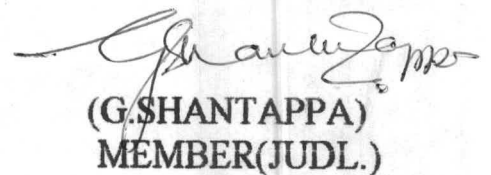 G. Shantappa
(G.SHANTAPPA)
MEMBER(JUDL.)